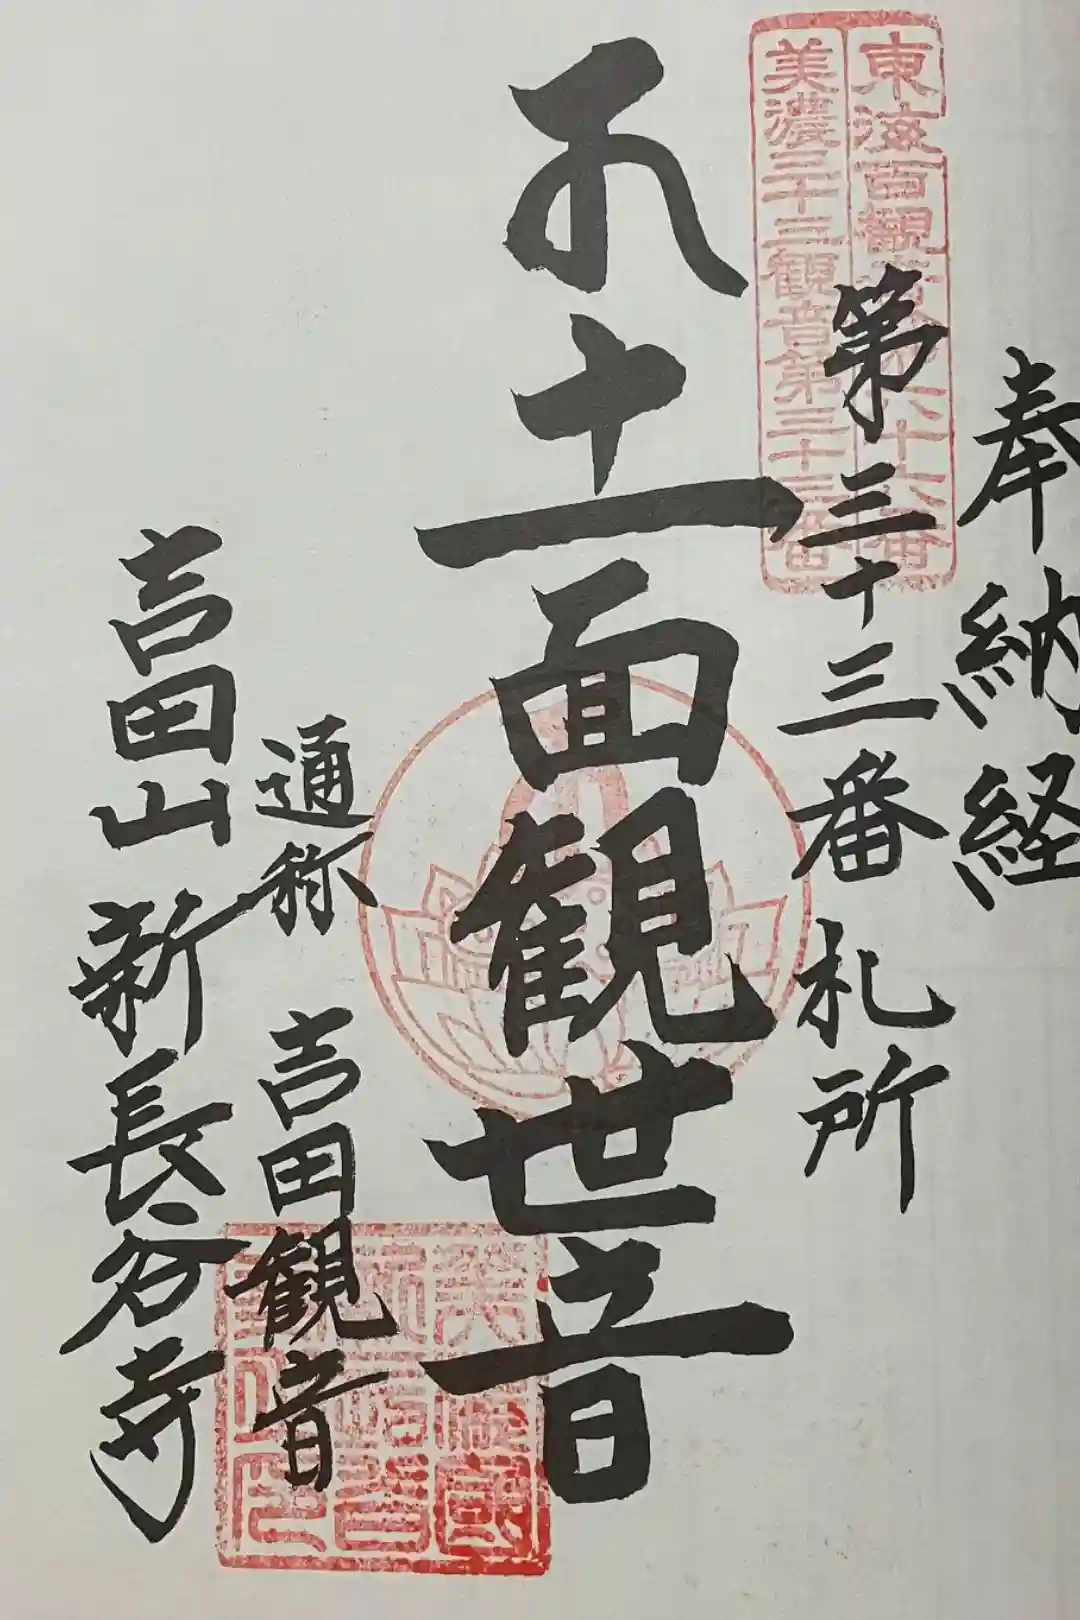 奉納経
東海百観音第六十六番
美濃三十三観音第三十三番
第三十三番札所
十一面観世音
通称 吉田観音
吉田山新長谷寺